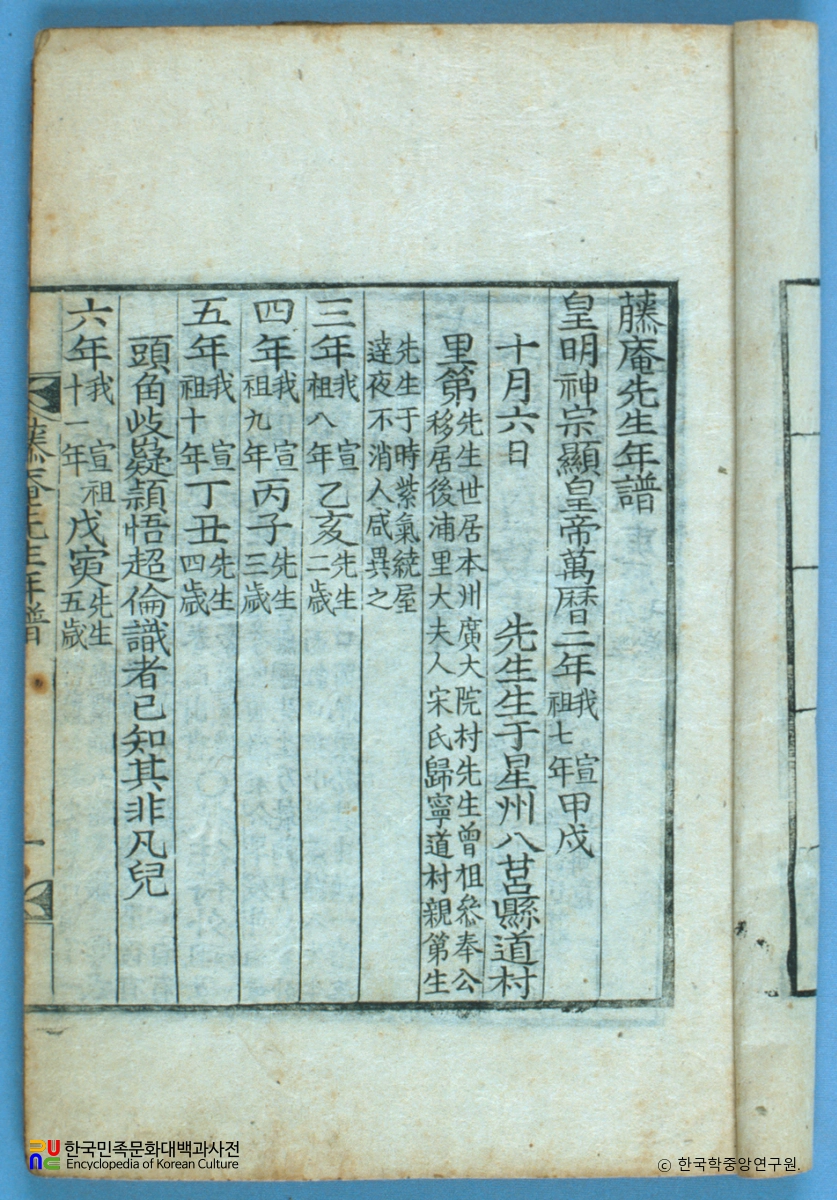 藤庵先生年譜
皇明神宗顯皇帝萬曆二年我 宣祖七年甲戌
十月六日 先生生于星州八莒縣道村
里第先生世居本州廣大院村先生曾祖叅奉公移居後浦里大夫人宋氏歸寧道村親第生
先生于時紫氣繞屋達夜不消人咸異之
三年我 宣祖八年乙亥先生二歲
四年我 宣祖九年丙子先生三歲
五年我 宣祖十年丁丑先生四歲
頭角岐嶷穎悟超倫識者已知其非凡兒
六年我 宣祖十一年戊寅先生五歲
藤庵先生年譜 一
한국민족문화대백과사전
Encyclopedia of Korean Culture
© 한국학중앙연구원.